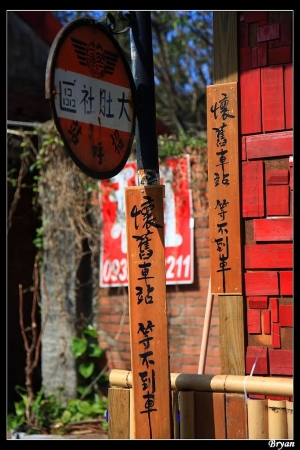 大肚社區
懷舊車站 等不到車
懷舊車站 等不到車
093
211
Bryan